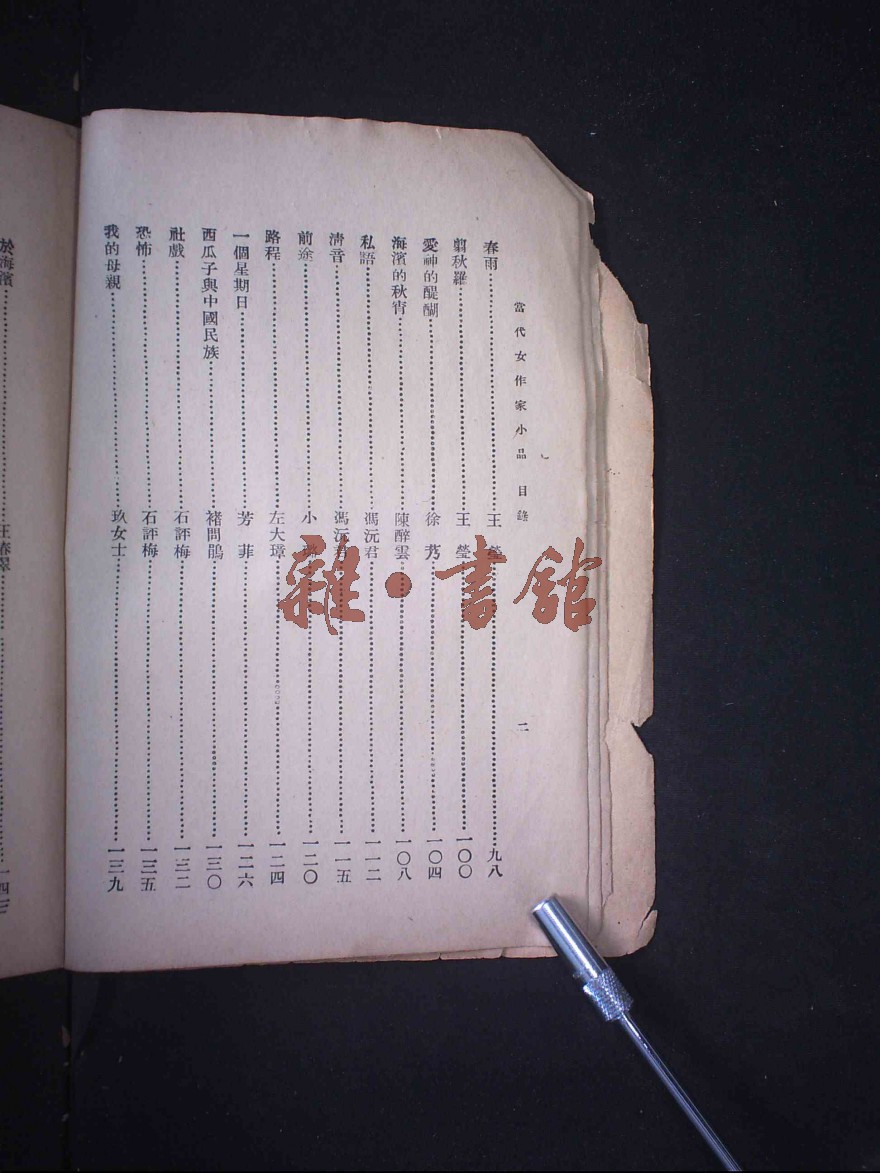 當代女作家小品 目錄 二
春雨 王瑩 九八
翦秋羅 王瑩 一〇〇
愛神的醍醐 徐艿 一〇四
海濱的秋宵 陳醉雲 一〇八
私語 馮沅君 一一二
清音 馮沅君 一一五
前途 小 一二〇
路程 左大璋 一二四
一個星期日 芳菲 一二六
西瓜子與中國民族 褚問鵑 一三〇
社戲 石評梅 一三二
恐怖 石評梅 一三五
我的母親 玖女士 一三九
於海濱 王春翠 一四三
雜·書館